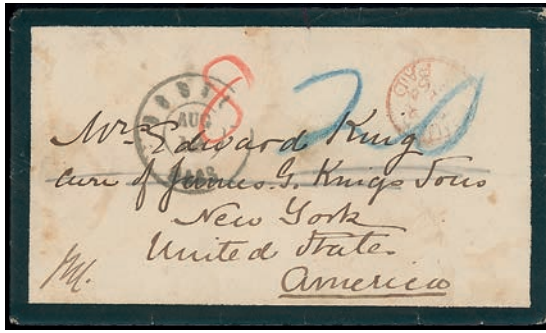 8
20
AUG
PAID
Mr. Edward King
care of James. G. King's Sons
New York
United States
America